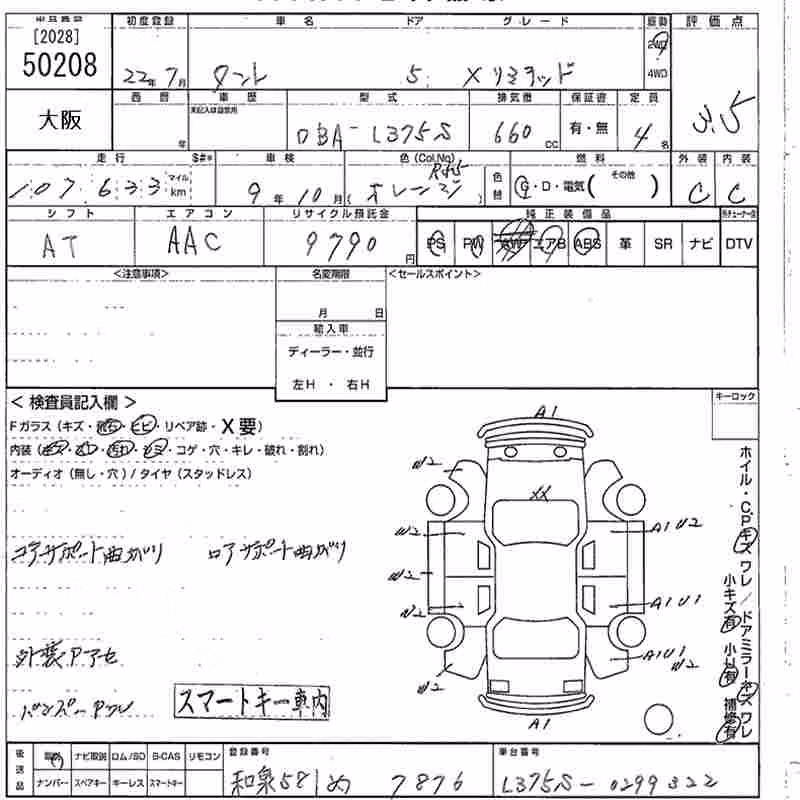 初度登録 車名 ドア グレード 駆動 評価点
[2028]
50208
22年 7月 タント 5 Xリミテッド 2WD 4WD
3.5
大阪
西暦 車歴 型式 排気量 保証書 定員
未記入は自家用
年 DBA-L375S 660 cc 有・無 4名
走行 S#* 車検 色(Col.No) 燃料 外装 内装
107,633 マイル km 9年 10月 (オレンジ) 色替 G・D・電気( その他 ) C C
シフト エアコン リサイクル預託金 純正装備品
AT AAC 9790円 PS PW AW エアB ABS 革 SR ナビ DTV
<注意事項> 名変期限 <セールスポイント>
月 日
輸入車
ディーラー・並行
左H ・ 右H
< 検査員記入欄 > キーロック
Fガラス(キズ・飛石・ヒビ・リペア跡・X要)
内装(キズ・スレ・汚れ・シミ・コゲ・穴・キレ・破れ・割れ)
オーディオ(無し・穴)/タイヤ(スタッドレス)
コアサポート曲がり ロアサポート曲がり
外装Pアセ
バンパーPワレ
スマートキー車内
A1
W2
XX
W2 A1 U2
W2
W2 A1 U1
A1U1
W2
W2
A1
ホイル・C.Pキズ ワレ/ドアミラーキズ ワレ
小キズ有 小U有 補修有
後送品 取説 ナビ取説 ロム/SD B-CAS リモコン 登録番号 車台番号
ナンバー スペアキー キーレス スマートキー 和泉581 め 7876 L375S-0299322